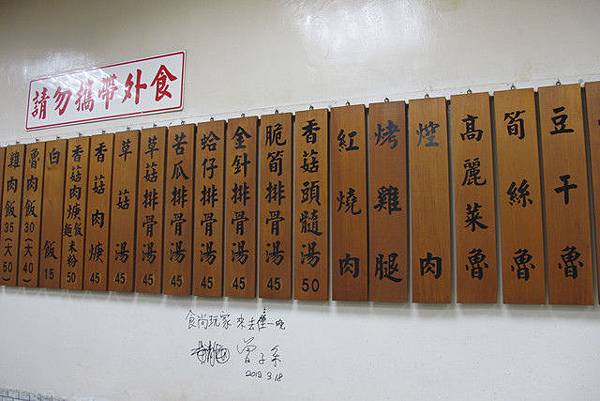 請勿攜帶外食
豆干魯
筍絲魯
高麗菜魯
焢肉
烤雞腿
紅燒肉
香菇頭髓湯 50
脆筍排骨湯 45
金針排骨湯 45
蛤仔排骨湯 45
苦瓜排骨湯 45
草菇排骨湯 45
草菇湯 45
香菇肉焿 45
香菇肉焿飯麵米粉 50
白飯 15
魯肉飯 30(大40)
雞肉飯 35(大50)
食尚玩家 來去住一晚
2012.3.18